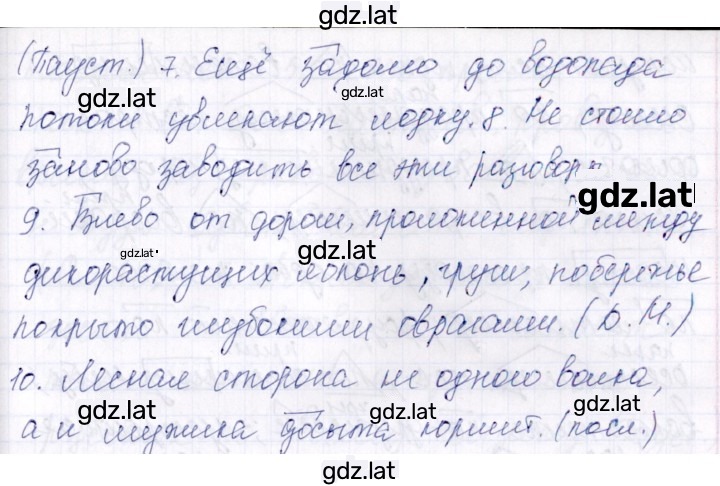 gdz.lat
(Пауст.) 7. Ещё задолго до водопада
gdz.lat gdz.lat gdz.lat
потоки увлекают лодку. 8. Не стоило
заново заводить все эти разговор
gdz.lat
9. Влево от дороги, проложенной между
gdz.lat gdz.lat
дикорастущих яблонь, груш, побережье
покрыто глубокими оврагами. (Д.М.)
10. Лесная сторона не одного волка,
gdz.lat gdz.lat gdz.lat
а и мужика досыта кормит. (посл.)
gdz.lat